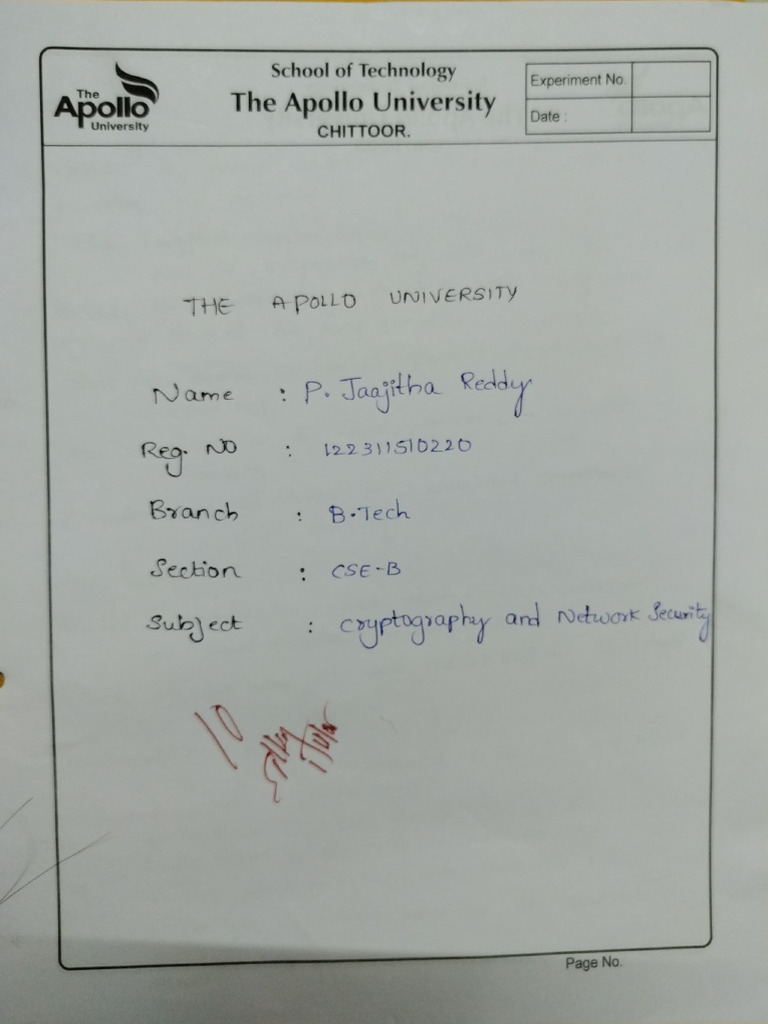 The
Apollo
University
School of Technology
The Apollo University
CHITTOOR.
Experiment No.
Date :
THE APOLLO UNIVERSITY
Name : P. Jaajitha Reddy
Reg. NO : 122311510220
Branch : B.Tech
Section : CSE-B
Subject : Cryptography and Network Security
10
Page No.